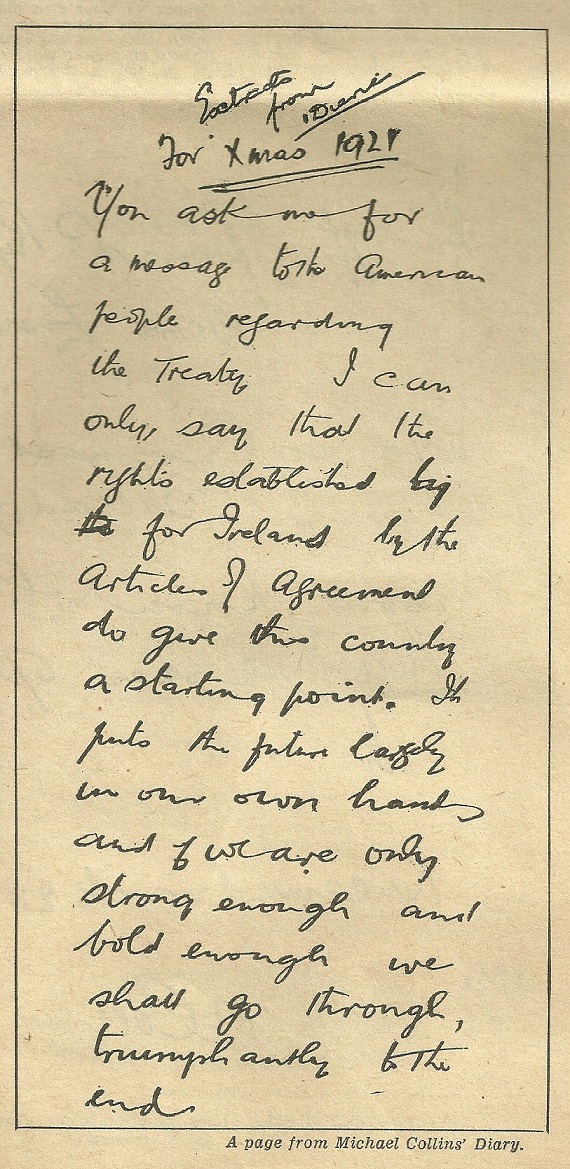 Extracts
from
Diary
For Xmas 1921
You ask me for
a message to the American
people regarding
the Treaty I can
only, say that the
rights established by
the for Ireland by the
Articles of Agreement
do give this country
a starting point. It
puts the future largely
in our own hands
and if we are only
strong enough and
bold enough we
shall go through,
triumphantly to the
end.
A page from Michael Collins' Diary.